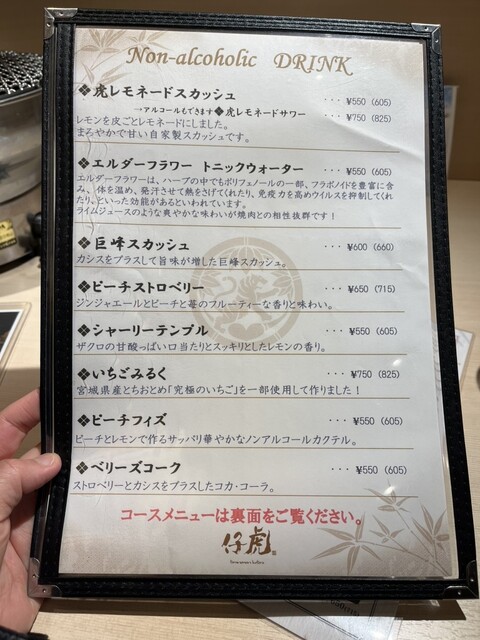 Non-alcoholic DRINK
❖虎レモネードスカッシュ ··· ¥550 (605)
→アルコールもできます◆虎レモネードサワー ··· ¥750 (825)
レモンを皮ごとレモネードにしました。
まろやかで甘い自家製スカッシュです。
❖エルダーフラワー トニックウォーター ··· ¥550 (605)
エルダーフラワーは、ハーブの中でもポリフェノールの一部、フラボノイドを豊富に含
み、体を温め、発汗させて熱をさげてくれたり、免疫力を高めウイルスを抑制してくれ
たり、といった効能があるといわれています。
ライムジュースのような爽やかな味わいが焼肉との相性抜群です！
❖巨峰スカッシュ ··· ¥600 (660)
カシスをプラスして旨味が増した巨峰スカッシュ。
❖ピーチストロベリー ··· ¥650 (715)
ジンジャエールとピーチと苺のフルーティーな香りと味わい。
❖シャーリーテンプル ··· ¥550 (605)
ザクロの甘酸っぱい口当たりとスッキリとしたレモンの香り。
❖いちごみるく ··· ¥750 (825)
宮城県産とちおとめ「究極のいちご」を一部使用して作りました！
❖ピーチフィズ ··· ¥550 (605)
ピーチとレモンで作るサッパリ華やかなノンアルコールカクテル。
❖ベリーズコーク ··· ¥550 (605)
ストロベリーとカシスをプラスしたコカ・コーラ。
コースメニューは裏面をご覧ください。
仔虎